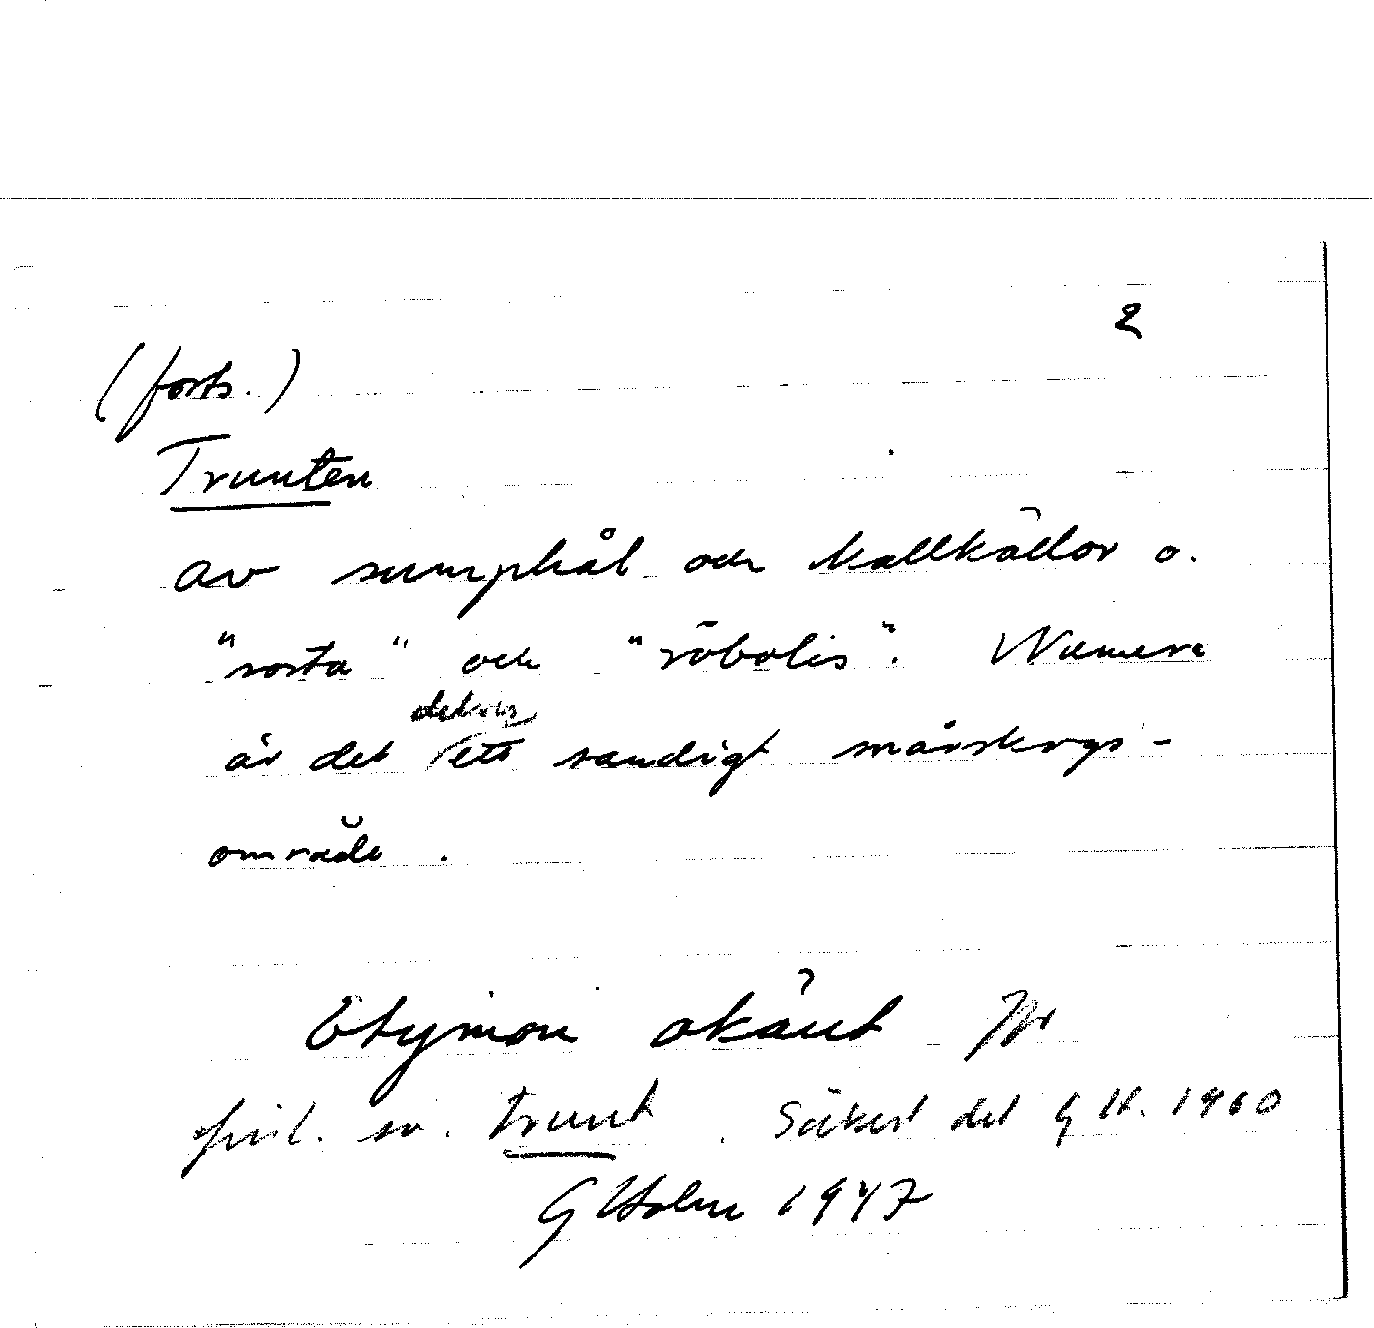 2
(forts.)
Trunten
av sumphål och kallkällor o.
"rosta" och "röbolis". Numera
delvis
är det ett sandigt mårskogs-
område.
Etymon okänt
fsv. sv. trunt. Säkert det G H. 1960
G Holm 1947